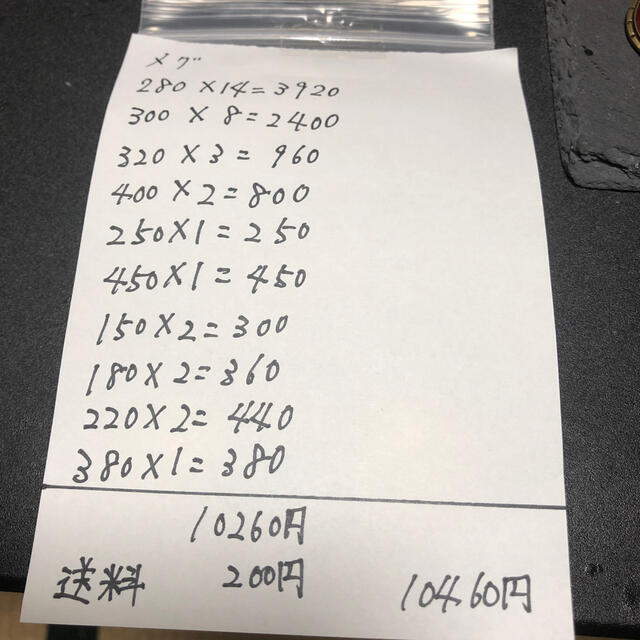 メグ
280 × 14 = 3920
300 × 8 = 2400
320 × 3 = 960
400 × 2 = 800
250 × 1 = 250
450 × 1 = 450
150 × 2 = 300
180 × 2 = 360
220 × 2 = 440
380 × 1 = 380
10260円
送料 200円 10460円